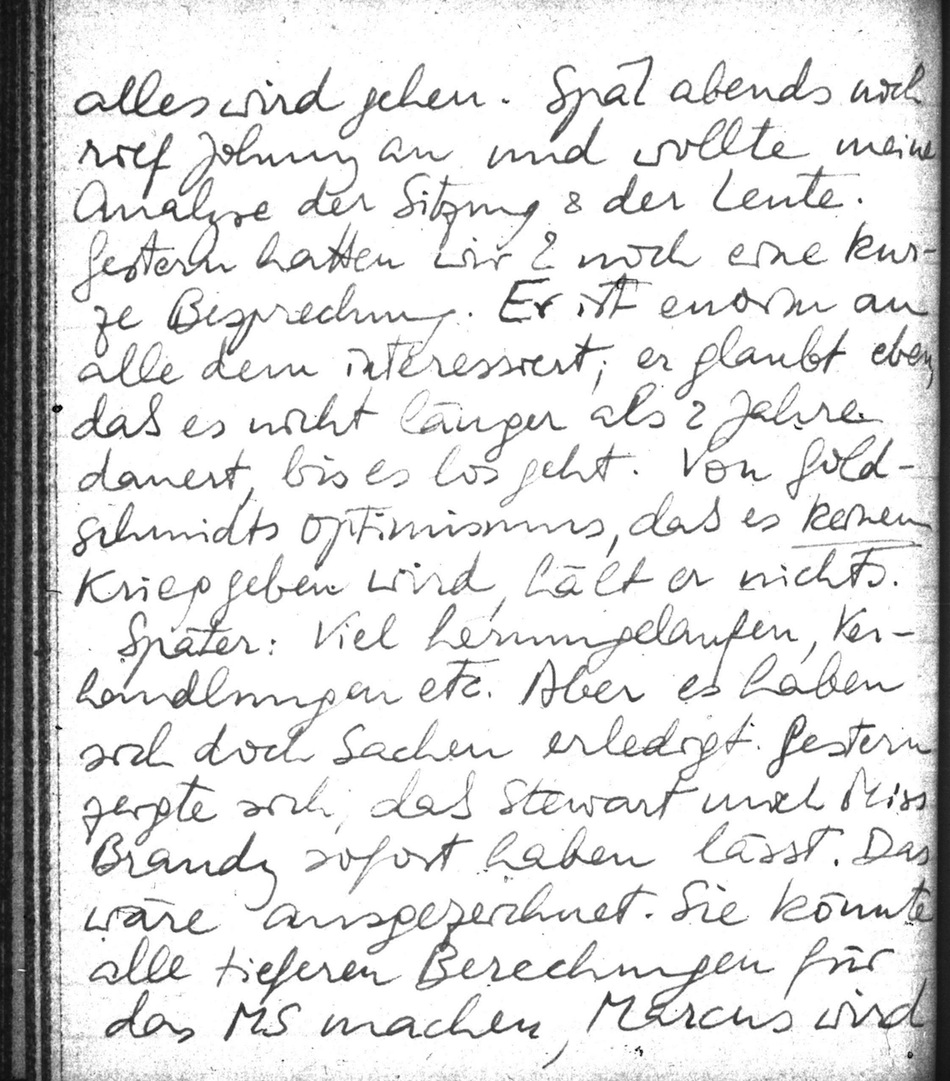 alles wird gehen. Spät abends noch
rief Johnny an und wollte meine
Analyse der Sitzung & der Leute.
Gestern hatten wir 2 noch eine kur-
ze Besprechung. Er ist enorm an
alle dem interessiert; er glaubt eben,
daß es nicht länger als 2 Jahre
dauert, bis es los geht. Von Gold-
schmidts Optimismus, daß es keinen
Krieg geben wird, hält er nichts.
Später: Viel herumgelaufen, Ver-
handlungen etc. Aber es haben
sich doch Sachen erledigt. Gestern
zeigte sich, daß Stewart mich Miss
Brandy sofort haben lässt. Das
wäre ausgezeichnet. Sie könnte
alle tieferen Berechnungen für
das MS machen, Marcus wird